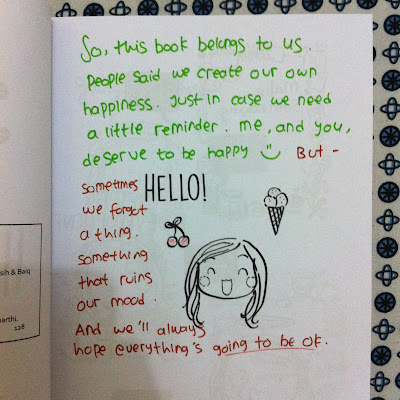 So, this book belongs to us.
People said we create our own
happiness. Just in case we need
a little reminder. me, and you,
deserve to be happy But -
sometimes HELLO!
we forget
a thing.
something
that ruins
our mood.
And we'll always
hope everything's going to be ok.
sih & Baiq